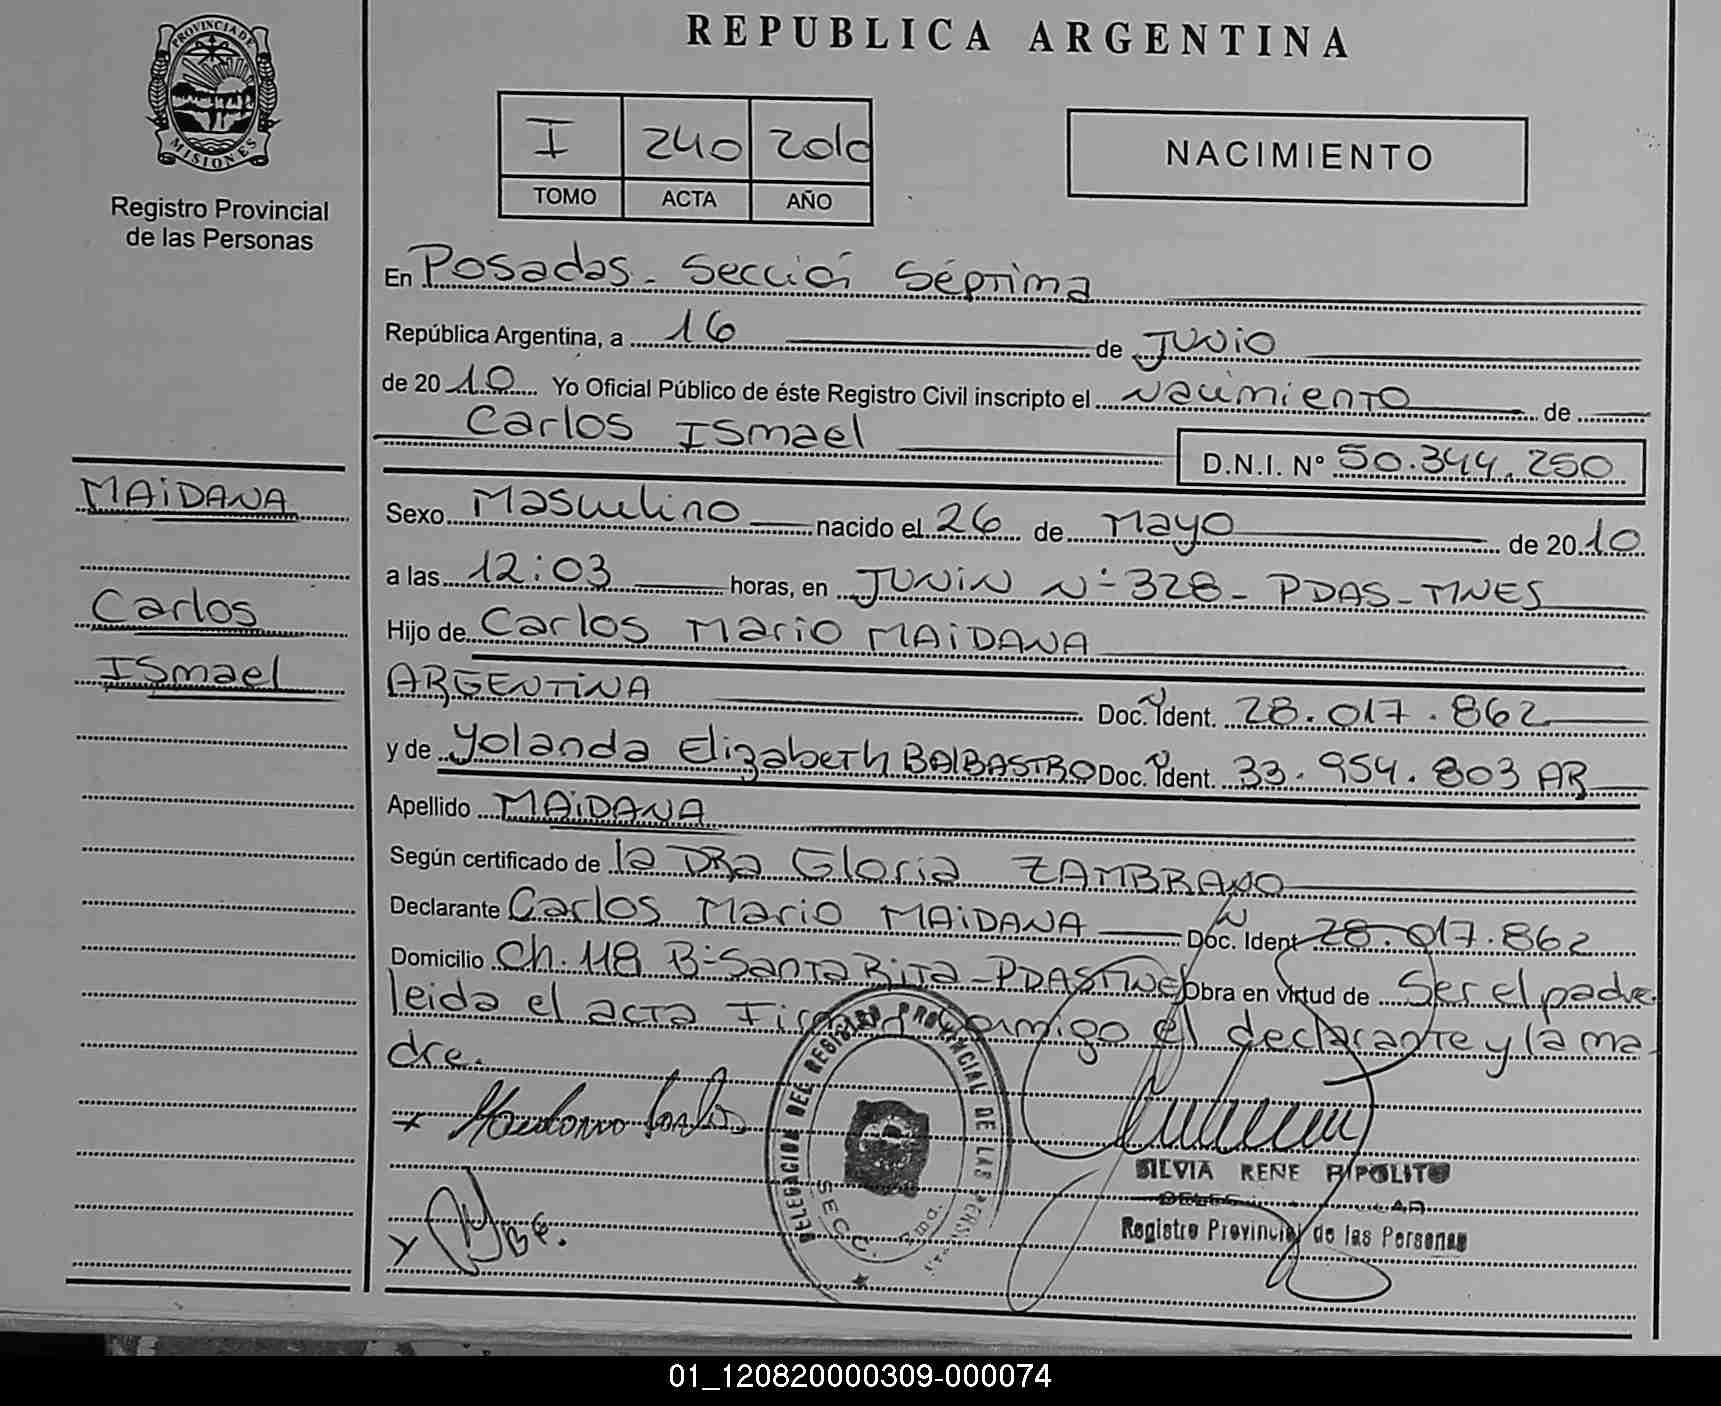 REPUBLICA ARGENTINA
PROVINCIA DE
MISIONES
Registro Provincial
de las Personas
I 240 2010
TOMO ACTA AÑO
NACIMIENTO
En Posadas - Secció Séptima
República Argentina, a 16 de Junio
de 2010 Yo Oficial Público de éste Registro Civil inscripto el Nacimiento de
Carlos Ismael D.N.I. Nº 50.344.250
MAIDANA
Carlos
Ismael
Sexo Masculino nacido el 26 de Mayo de 2010
a las 12:03 horas, en JUNIN Nº 328 - PDAS - MNES
Hijo de Carlos Mario MAIDANA
ARGENTINA Doc. Ident. 28.017.862
y de Yolanda Elizabeth BALBASTRO Doc. Ident. 33.954.803 AR
Apellido MAIDANA
Según certificado de la DRA Gloria ZAMBRANO
Declarante Carlos Mario MAIDANA Doc. Ident. 28.017.862
Domicilio Ch. 118 Bº Santa Rita - PDAS MNES Obra en virtud de Ser el padre
leida el acta conmigo el declarante y la ma-
dre.
DELEGACION DEL REGISTRO PROVINCIAL DE LAS
SECC. 7ma.
SILVIA RENE RIPOLITO
Registro Provincial de las Personas
01_120820000309-000074